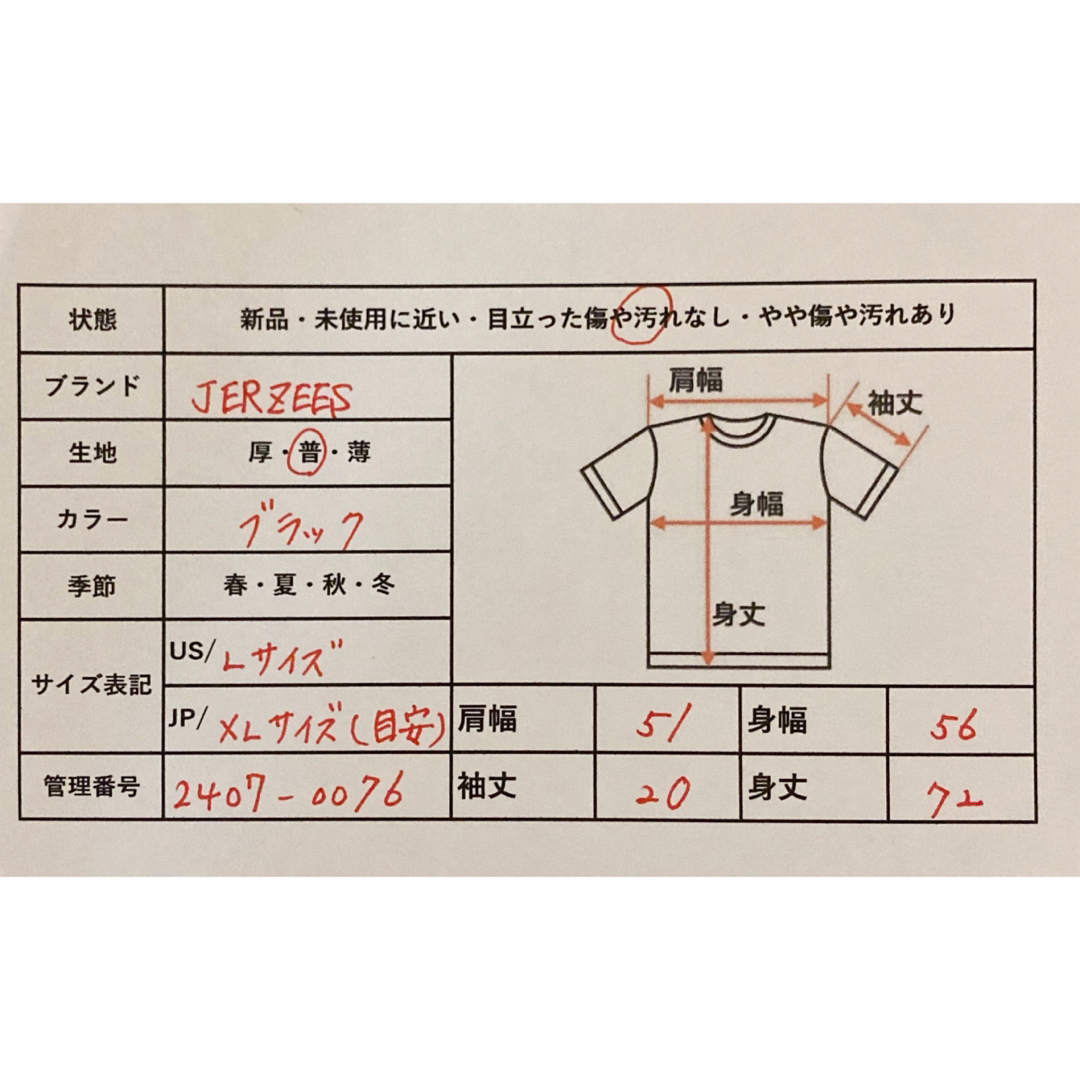 状態 新品・未使用に近い・目立った傷や汚れなし・やや傷や汚れあり
ブランド JERZEES
生地 厚・普・薄
カラー ブラック
季節 春・夏・秋・冬
サイズ表記 US/Lサイズ
JP/XLサイズ(目安)
管理番号 2407-0076
肩幅
袖丈
身幅
身丈
肩幅 51 身幅 56
袖丈 20 身丈 72